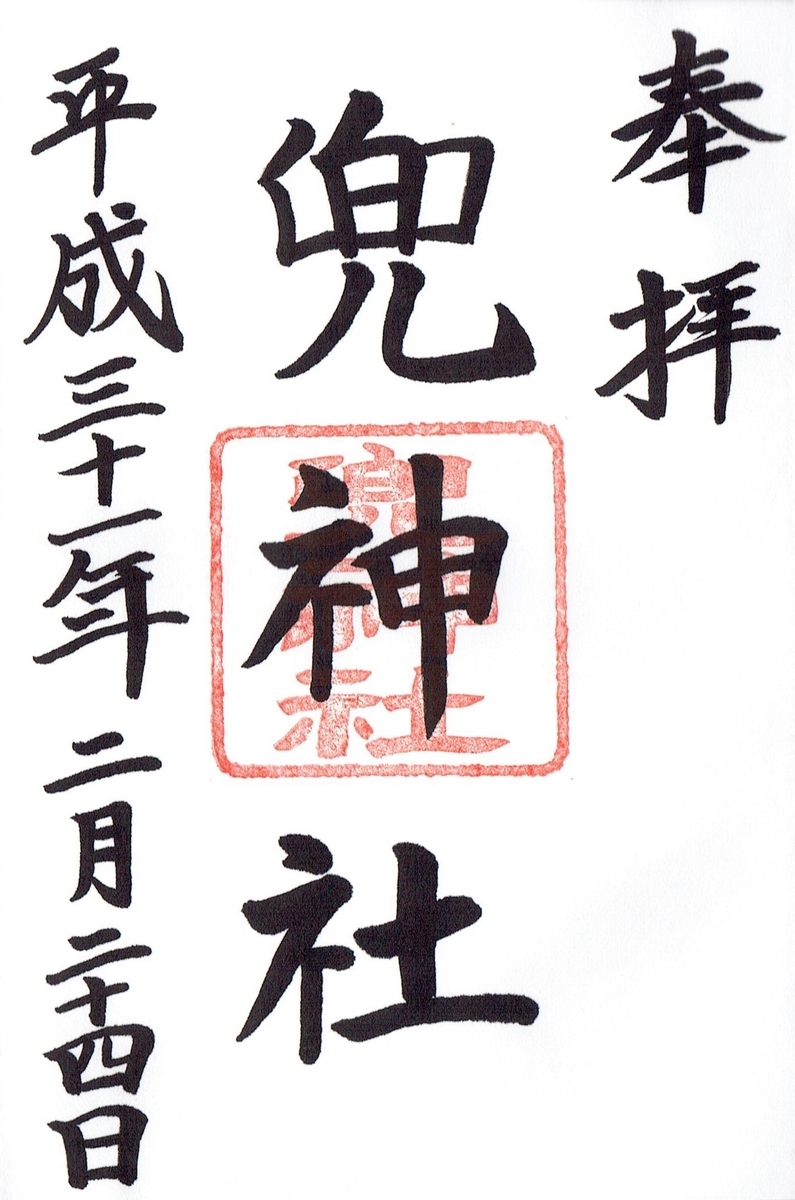 奉拝
兜神社
兜神社
平成三十一年二月二十四日